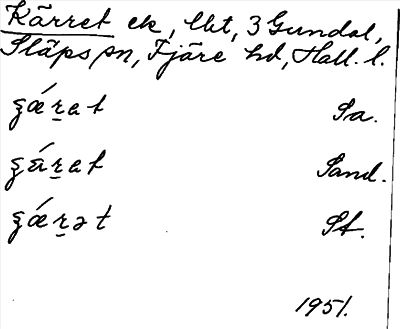 Kärret ek, lht, 3 Gundal,
Släps sn, Fjäre hd, Hall. l.
ʂǽr̲at Sa.
ʂä́r̲at Sand.
ʂǽr̲ət St.
1951.